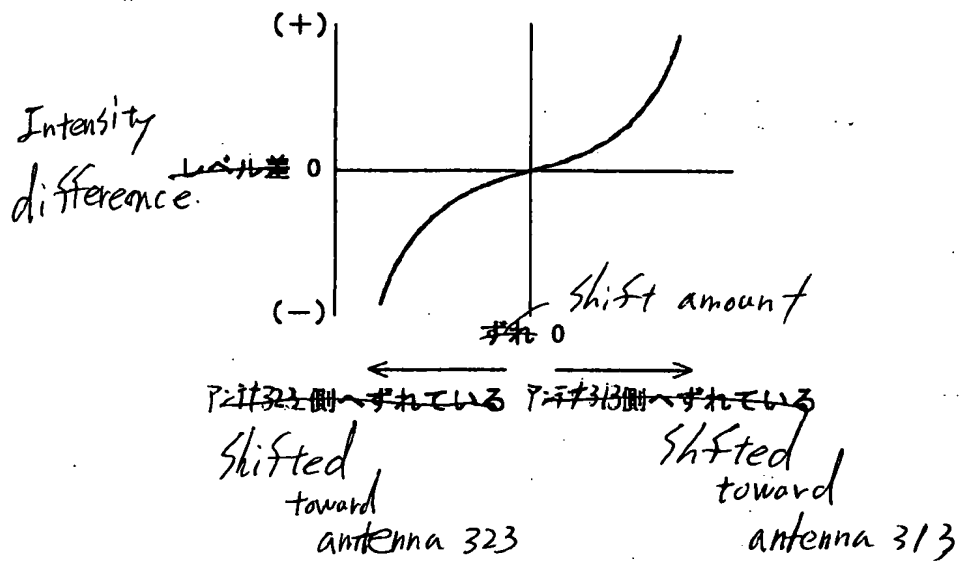 (+)
Intensity
difference.
レベル差 0
(−)
Shift amount
ずれ 0
アンテナ323側へずれている アンテナ313側へずれている
Shifted
toward
antenna 323
Shfted
toward
antenna 313